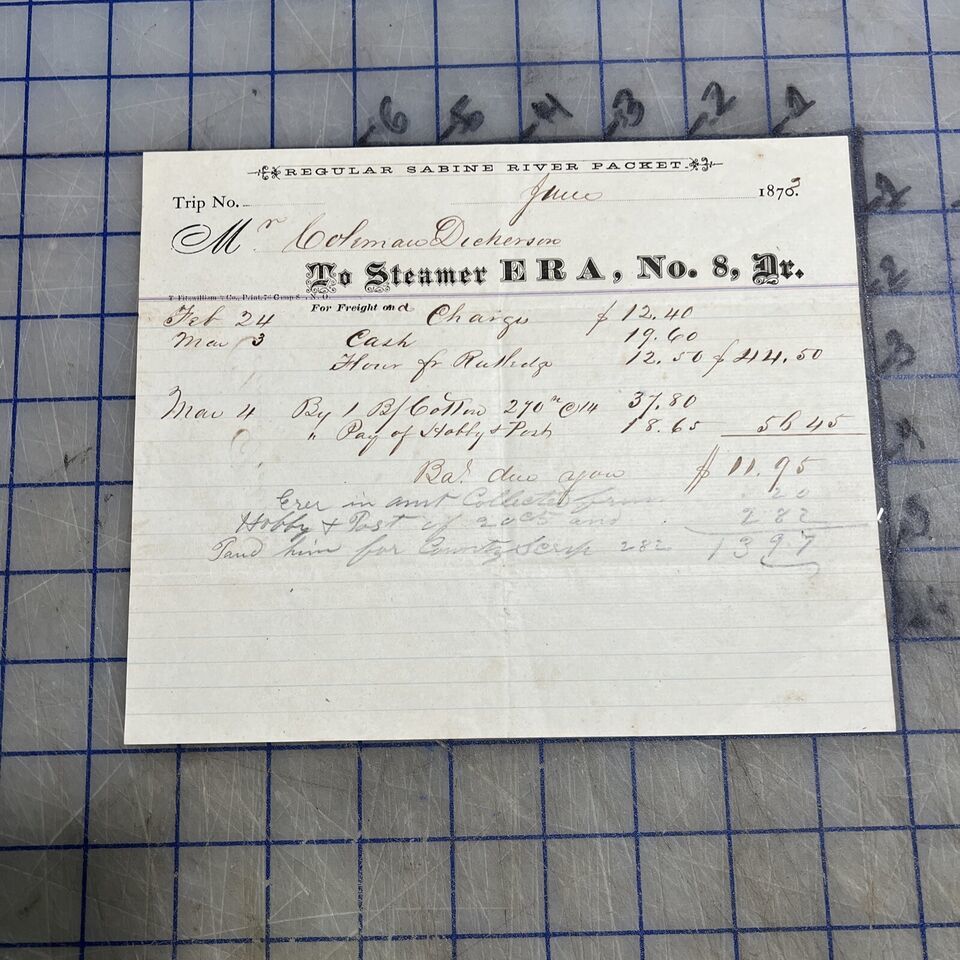 6 5 4 3 2 1
REGULAR SABINE RIVER PACKET.
Trip No. June 1873
Mr Coleman Dickerson
To Steamer ERA, No. 8, Dr.
T. Fitzwilliam & Co., Print, 76 Camp St., N. O.
For Freight on a
Feb 24 Charge $ 12.40
Mar 3 Cash 19.60
Flour fr Rutledge 12.50 $ 44.50
Mar 4 By 1 B/ Cotton 270 @ 14 37.80
" Pay of Hobby & Post 18.65 56 45
Bal due you $ 11.95
Erer in amt Collected from 20
Hobby & Post of 20 and 2 82
him for County Scrip 282 13 97
1
2
3
4
5